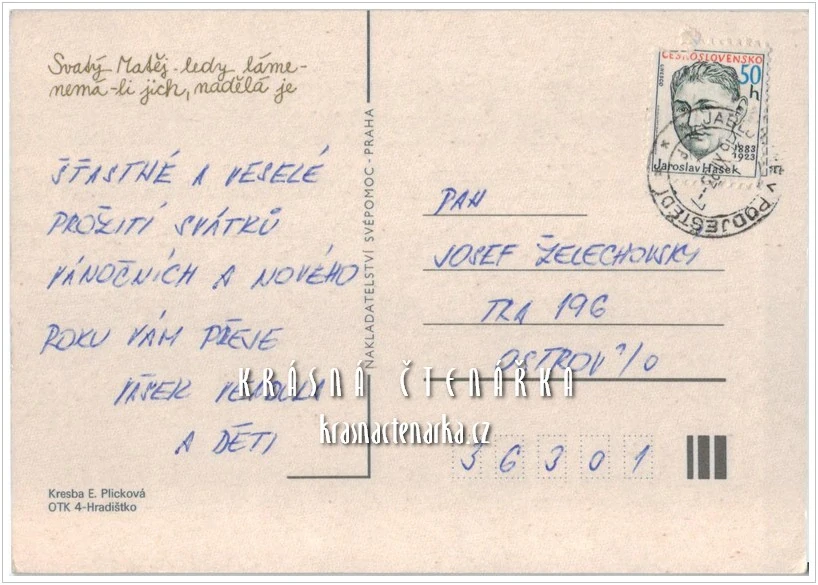 Svatý Matěj-ledy láme-
nemá-li jich, nadělá je
ŠŤASTNÉ A VESELÉ
PROŽITÍ SVÁTKŮ
VÁNOČNÍCH A NOVÉHO
ROKU VÁM PŘEJE
VAŠEK
A DĚTI
Kresba E. Plicková
OTK 4-Hradištko
NAKLADATELSTVÍ SVÉPOMOC - PRAHA
ČESKOSLOVENSKO
50
h
1883
1923
Jaroslav Hašek
V PODJEŠTĚDÍ
PAN
JOSEF ŽELECHOVSKY
TRA 196
OSTROV n/O
36301
KRÁSNÁ ČTENÁŘKA
krasnactenarka.cz